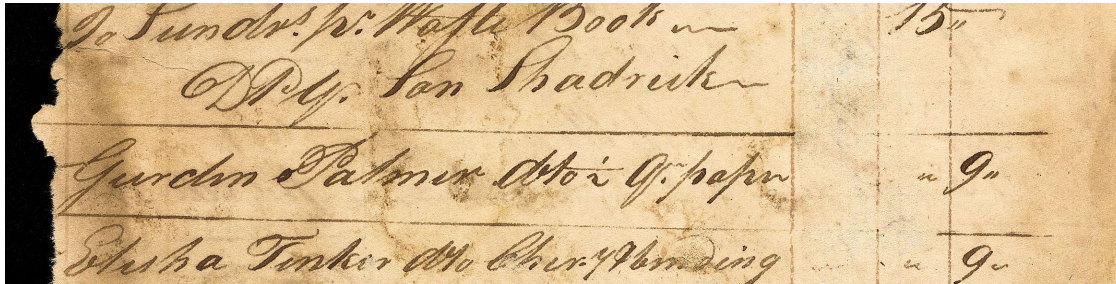 Jo Sundrs. pr. Waste Book 15"
DPy. Son Shadrick
Gurdin Palmer dto ½ Qr. paper " 9"
Elisha Tinker dto " 9"